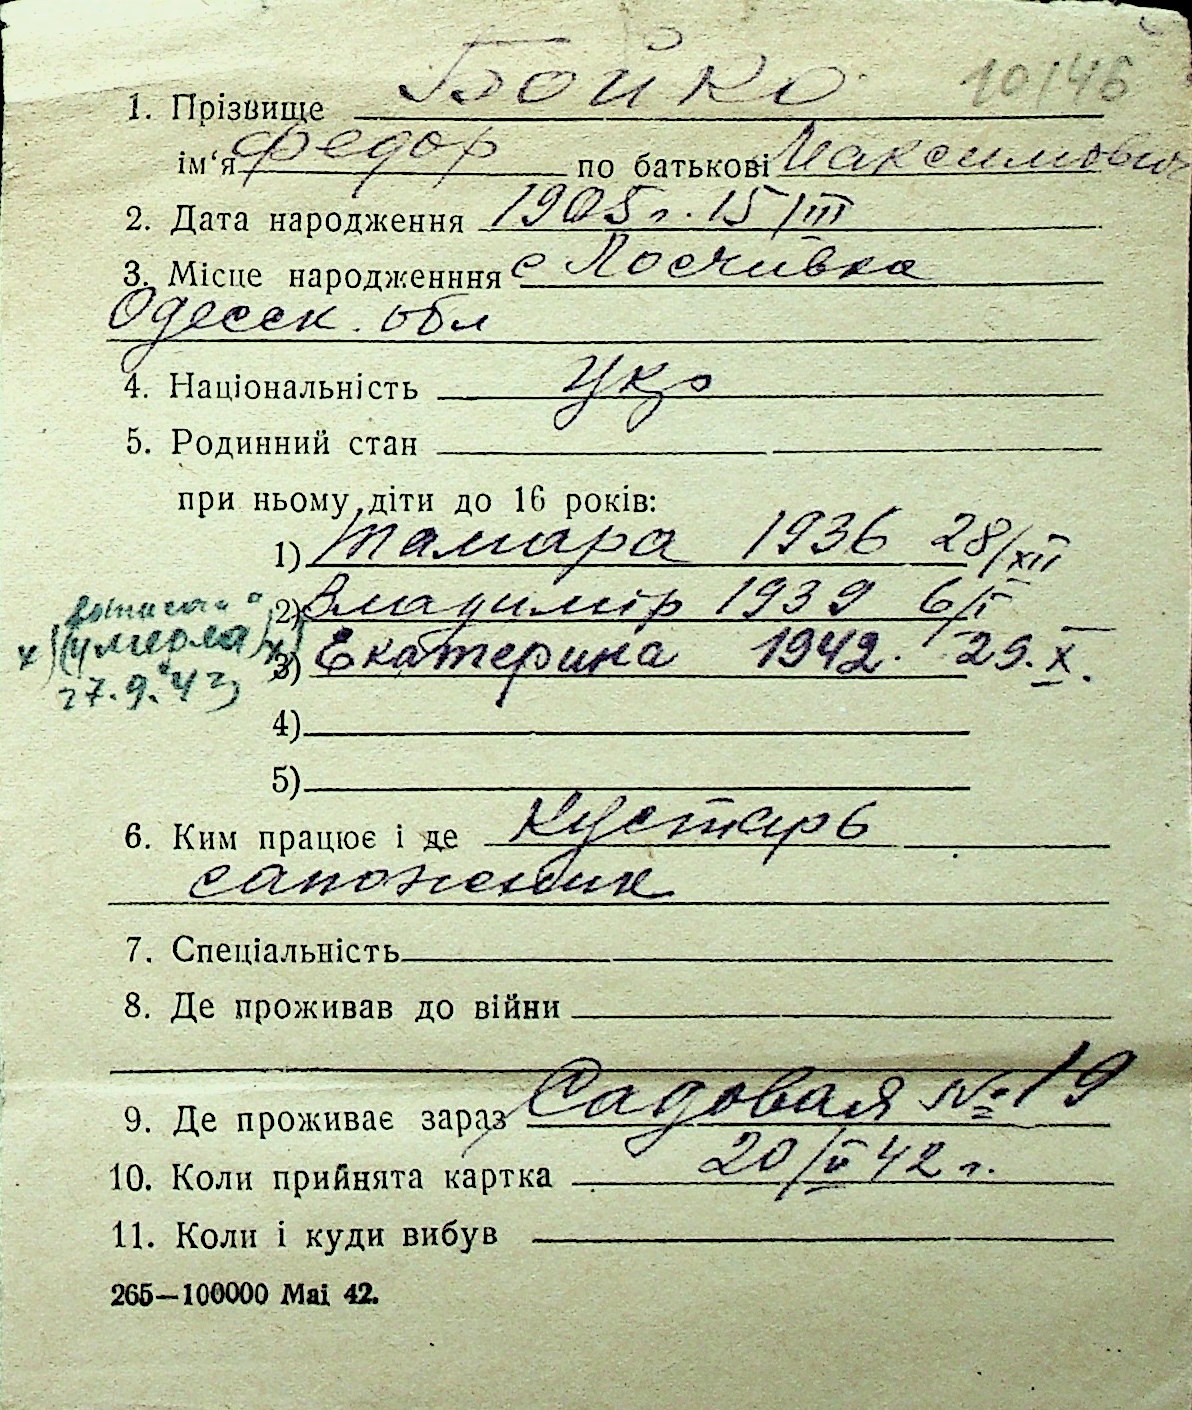 10146
1. Прізвище Бойко
ім‘я Федор по батькові Максимович
2. Дата народження 1905 г. 15/III
3. Місце народженння с Лосчивка
Одесск. обл
4. Національність укр
5. Родинний стан
при ньому діти до 16 років:
1) Тамара 1936 28/XII
2) Владимір 1939 6/I
x) (умерла x) 3) Екатерина 1942. 29.X.
27.9.43)
4)
5)
6. Ким працює і де Кустарь
сапожник
7. Спеціальність
8. Де проживав до війни
9. Де проживає зараз Садовая № 19
10. Коли прийнята картка 20/V 42 г.
11. Коли і куди вибув
265—100000 Mai 42.